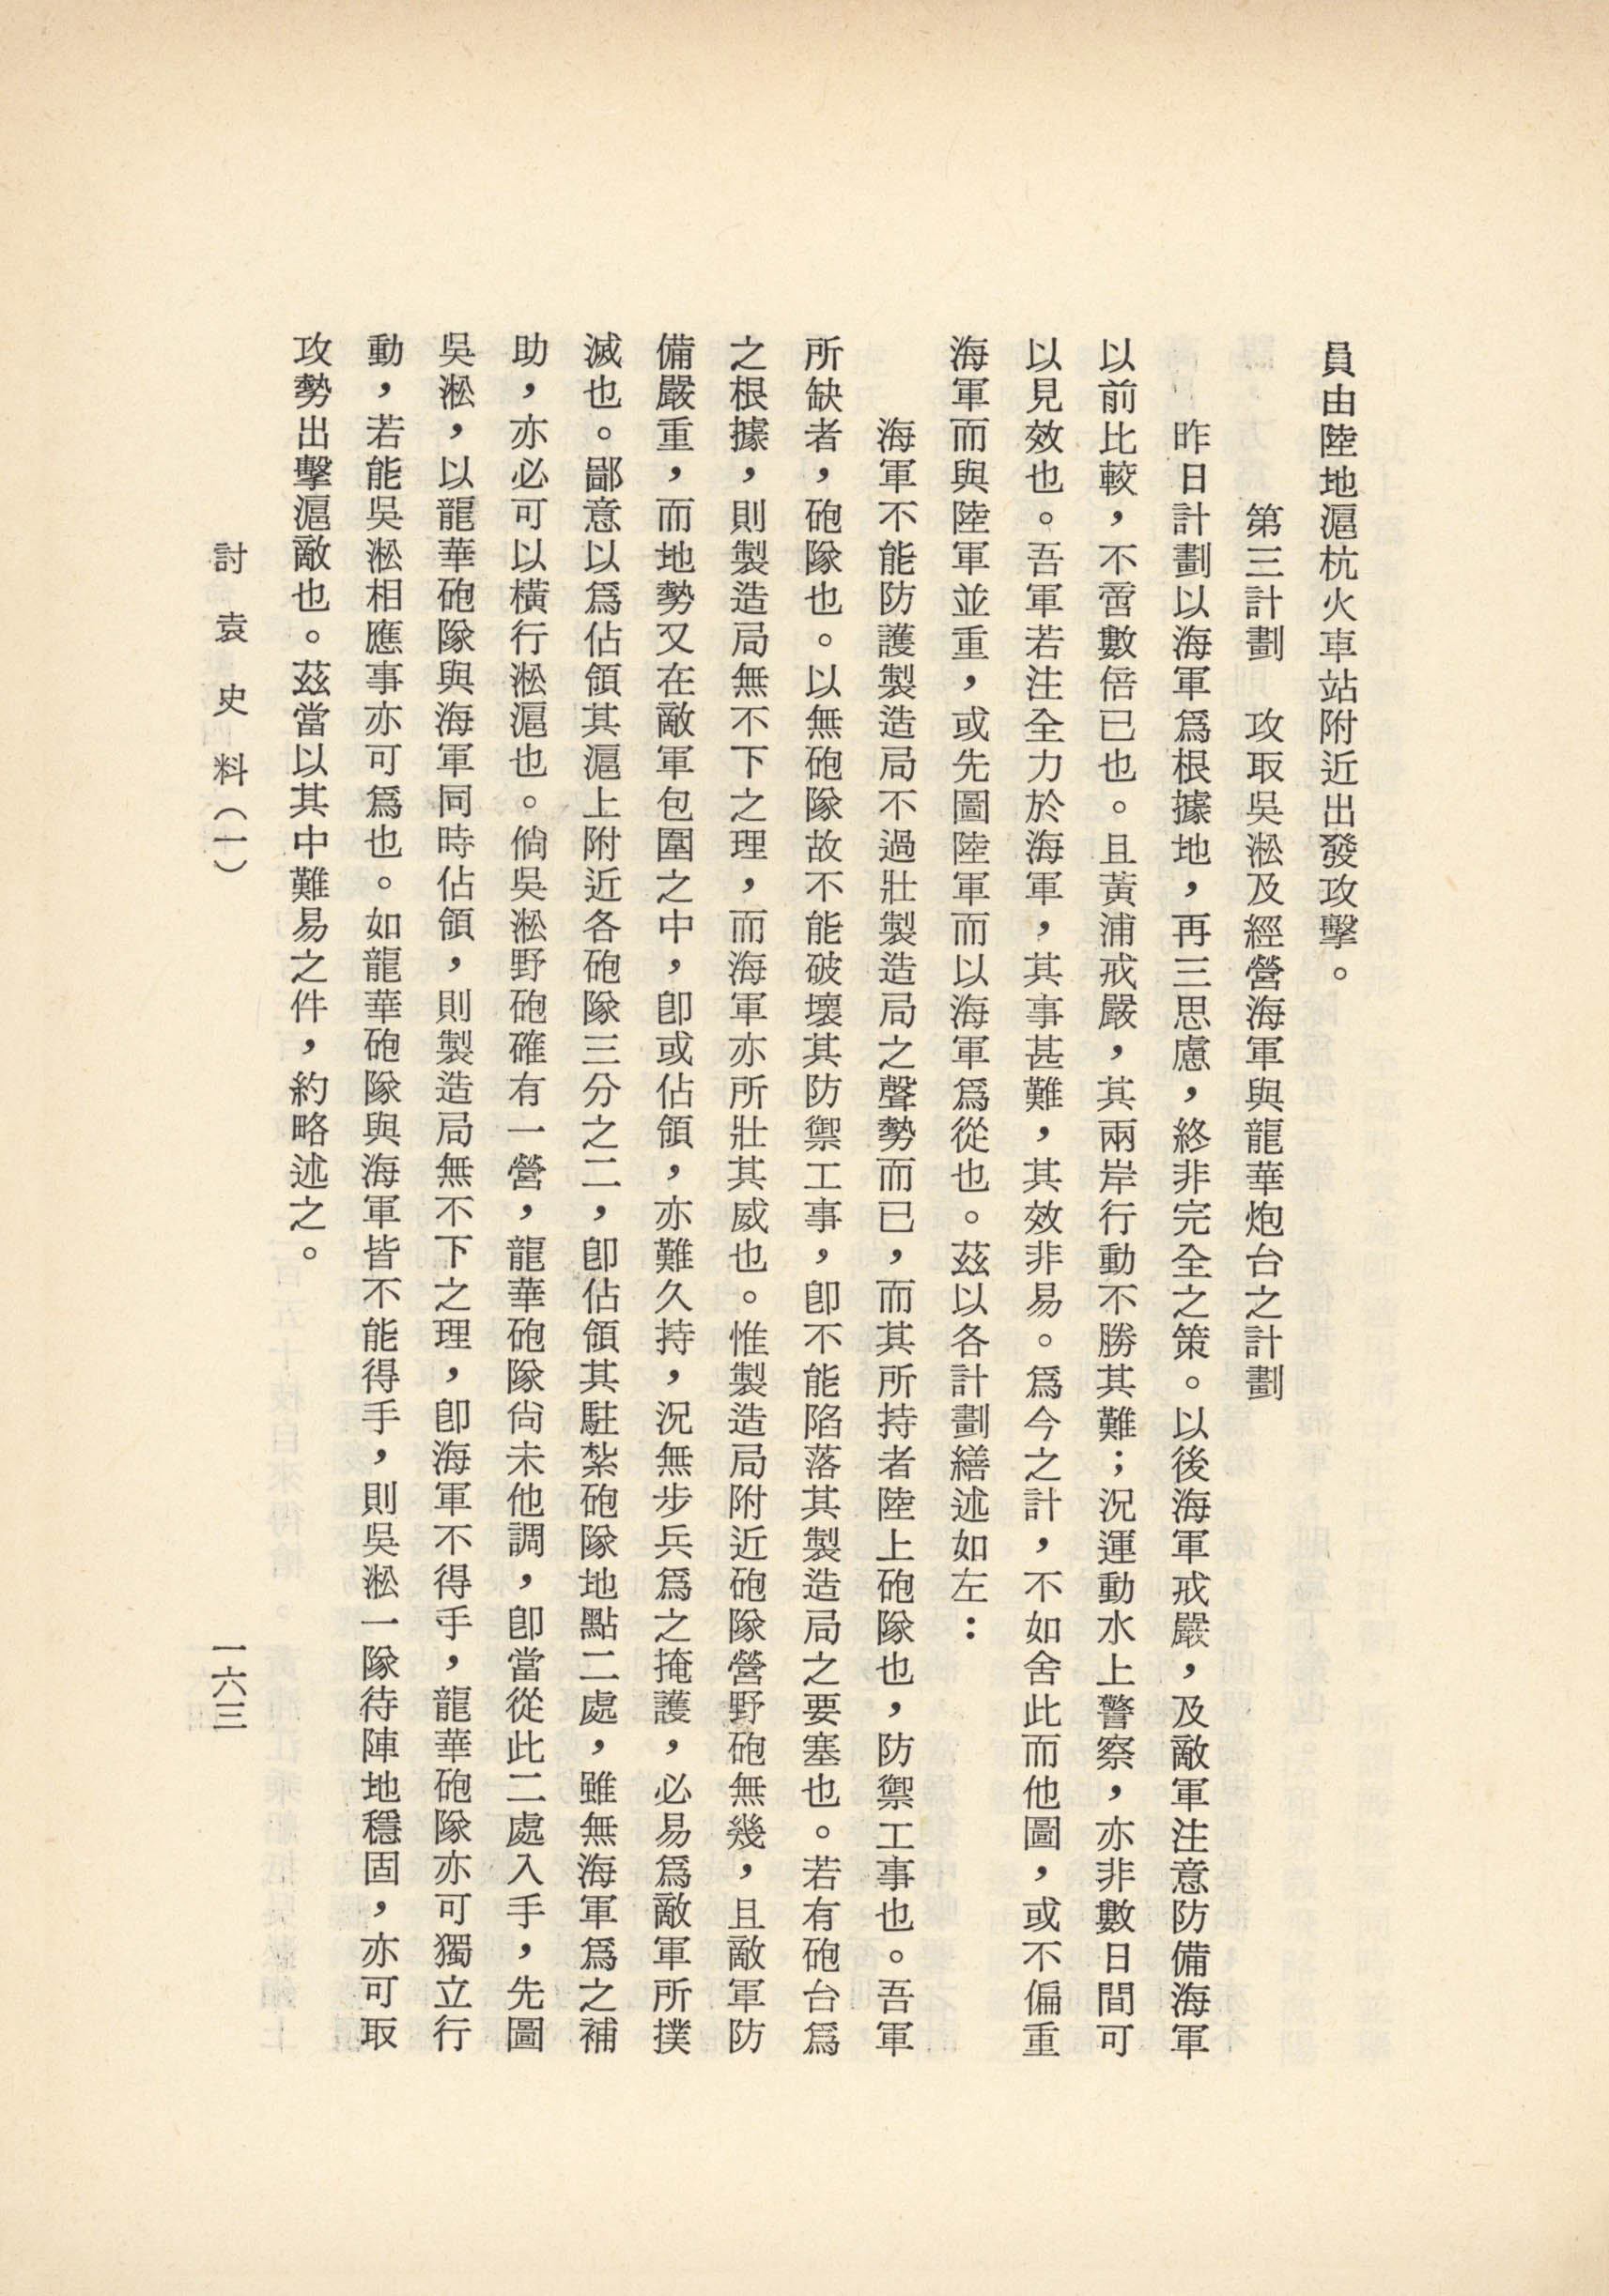 員由陸地滬杭火車站附近出發攻擊。
第三計劃　攻取吳淞及經營海軍與龍華炮台之計劃
昨日計劃以海軍爲根據地，再三思慮，終非完全之策。以後海軍戒嚴，及敵軍注意防備海軍
以前比較，不啻數倍已也。且黃浦戒嚴，其兩岸行動不勝其難；況運動水上警察，亦非數日間可
以見效也。吾軍若注全力於海軍，其事甚難，其效非易。爲今之計，不如舍此而他圖，或不偏重
海軍而與陸軍並重，或先圖陸軍而以海軍爲從也。茲以各計劃繕述如左：
海軍不能防護製造局不過壯製造局之聲勢而已，而其所持者陸上砲隊也，防禦工事也。吾軍
所缺者，砲隊也。以無砲隊故不能破壞其防禦工事，卽不能陷落其製造局之要塞也。若有砲台爲
之根據，則製造局無不下之理，而海軍亦所壯其威也。惟製造局附近砲隊營野砲無幾，且敵軍防
備嚴重，而地勢又在敵軍包圍之中，卽或佔領，亦難久持，況無步兵爲之掩護，必易爲敵軍所撲
滅也。鄙意以爲佔領其滬上附近各砲隊三分之二，卽佔領其駐紮砲隊地點二處，雖無海軍爲之補
助，亦必可以橫行淞滬也。倘吳淞野砲確有一營，龍華砲隊尙未他調，卽當從此二處入手，先圖
吳淞，以龍華砲隊與海軍同時佔領，則製造局無不下之理，卽海軍不得手，龍華砲隊亦可獨立行
動，若能吳淞相應事亦可爲也。如龍華砲隊與海軍皆不能得手，則吳淞一隊待陣地穩固，亦可取
攻勢出擊滬敵也。茲當以其中難易之件，約略述之。
討袁史料（一）
一六三